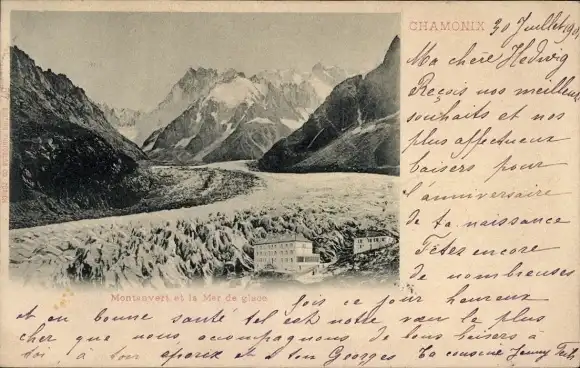 CHAMONIX 30 Juillet 190
Ma chère Hedwig
Reçois nos meilleurs
souhaits et nos
plus affectueux
baisers pour
l'anniversaire
de ta naissance
Fêtes encore
de nombreuses
fois ce jour heureux
et en bonne santé tel est notre vœu le plus
cher que nous accompagnons de bons baisers à
toi, à ton époux et à ton Georges Ta cousine Jenny
Montenvert et la Mer de glace